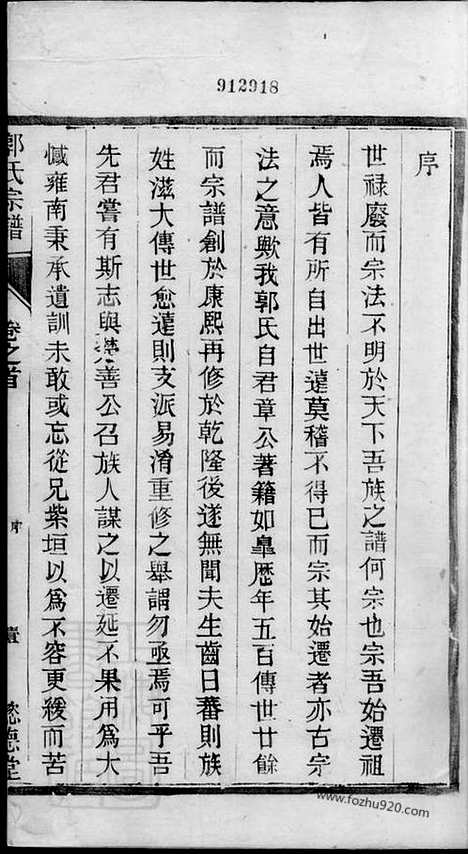 912918
序
世祿廢而宗法不明於天下吾族之譜何宗也宗吾始遷祖
焉人皆有所自出世遠莫稽不得已而宗其始遷者亦古宗
法之意歟我郭氏自君章公著籍如臯歷年五百傳世廿餘
而宗譜創於康熙再修於乾隆後遂無聞夫生齒日蕃則族
姓滋大傳世愈遠則支派易淆重修之舉謂勿亟焉可乎吾
先君嘗有斯志與燮善公召族人謀之以遷延不果用為大
憾雍南秉承遺訓未敢或忘從兄紫垣以為不容更緩而苦
郭氏宗譜
卷之首
序
壹
懋德堂
www.fozhu920.com